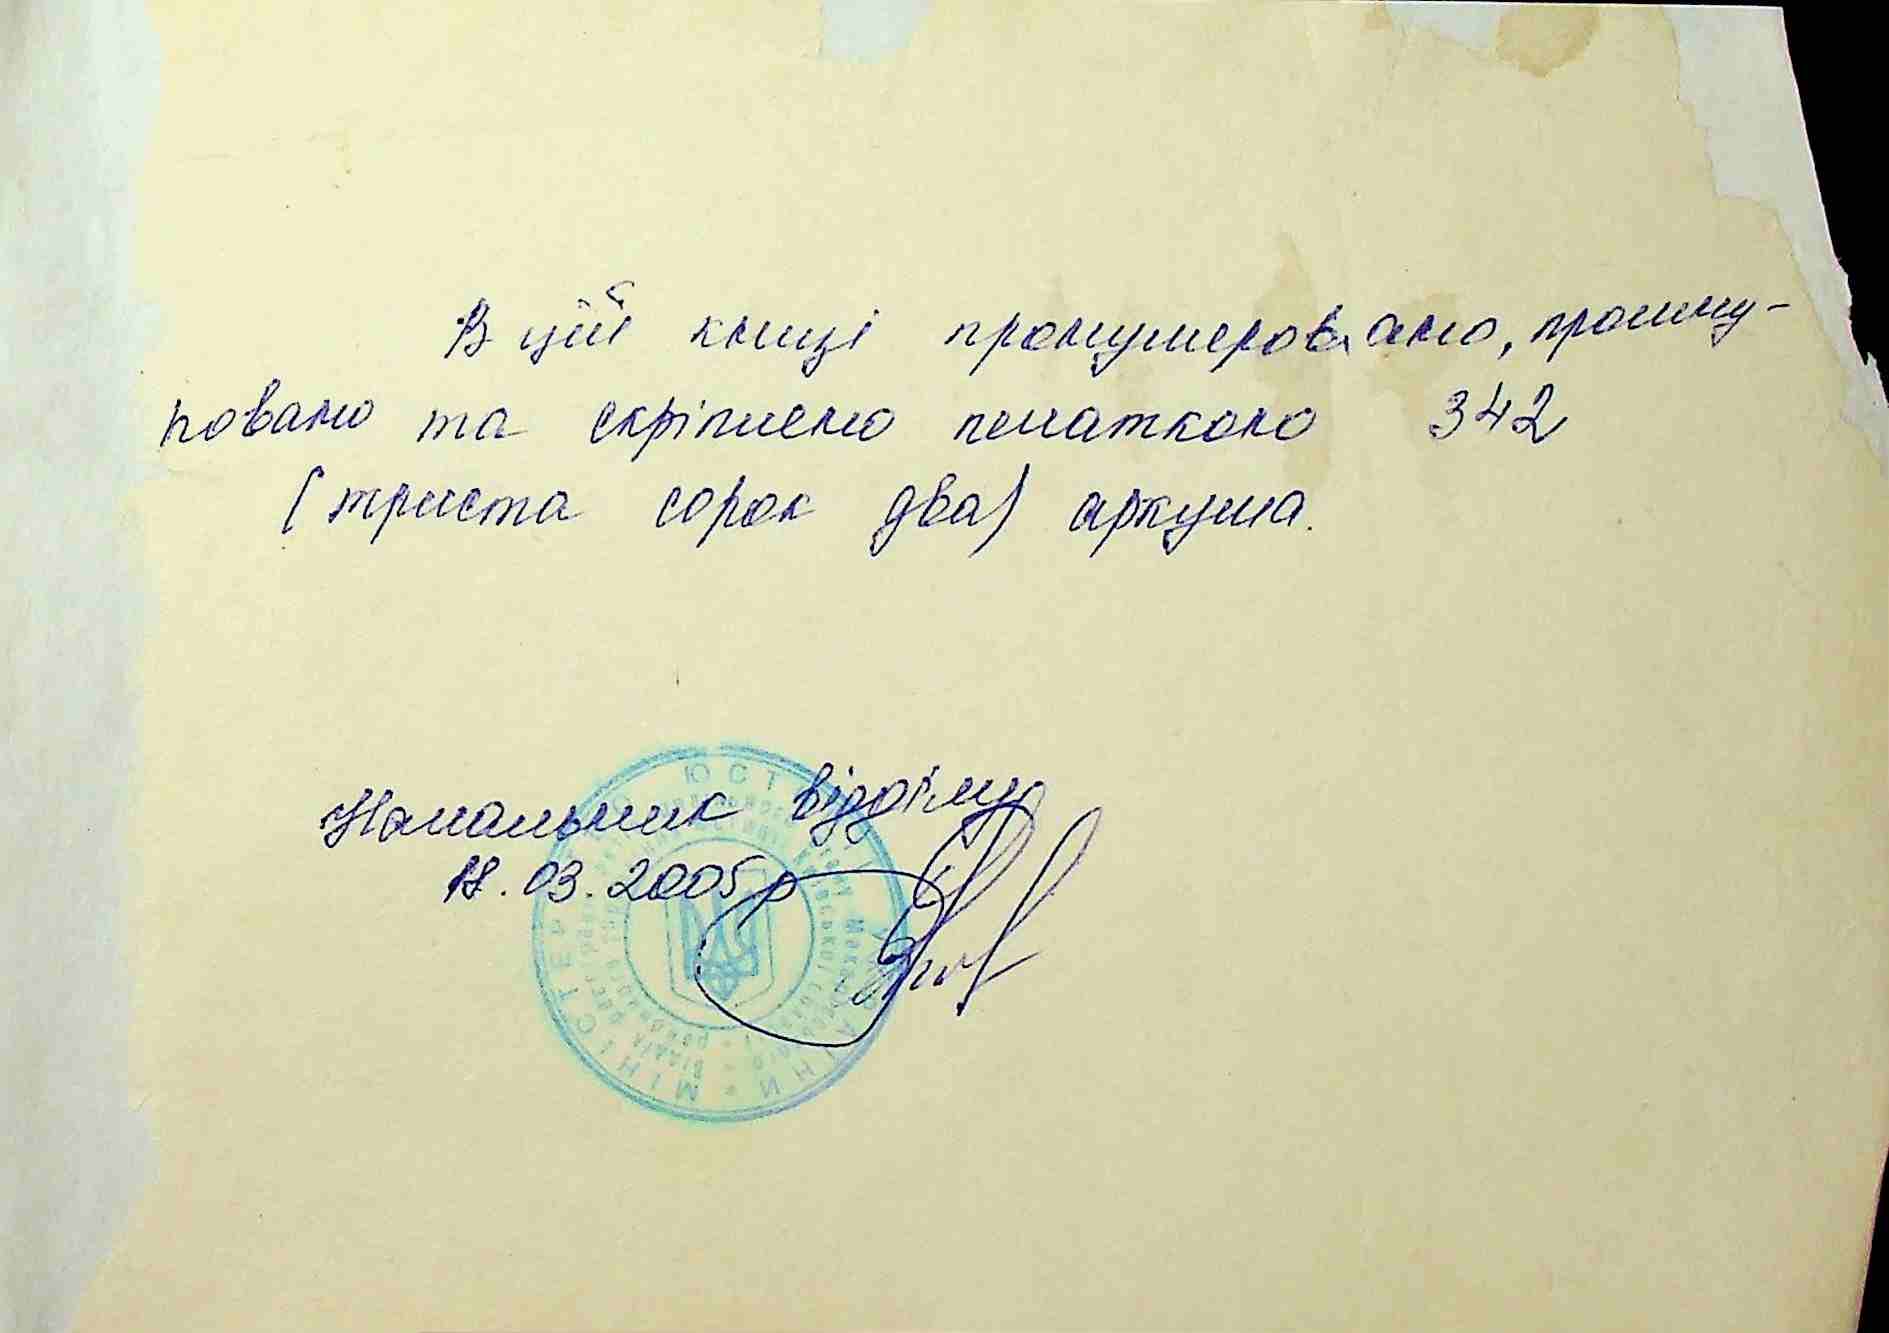 В цій книзі пронумеровано, прошну-
ровано та скріплено печаткою 342
(триста сорок два) аркуша.
Начальник відділу
18.03.2005р
МІНІСТЕРСТВО ЮСТИЦІЇ УКРАЇНИ